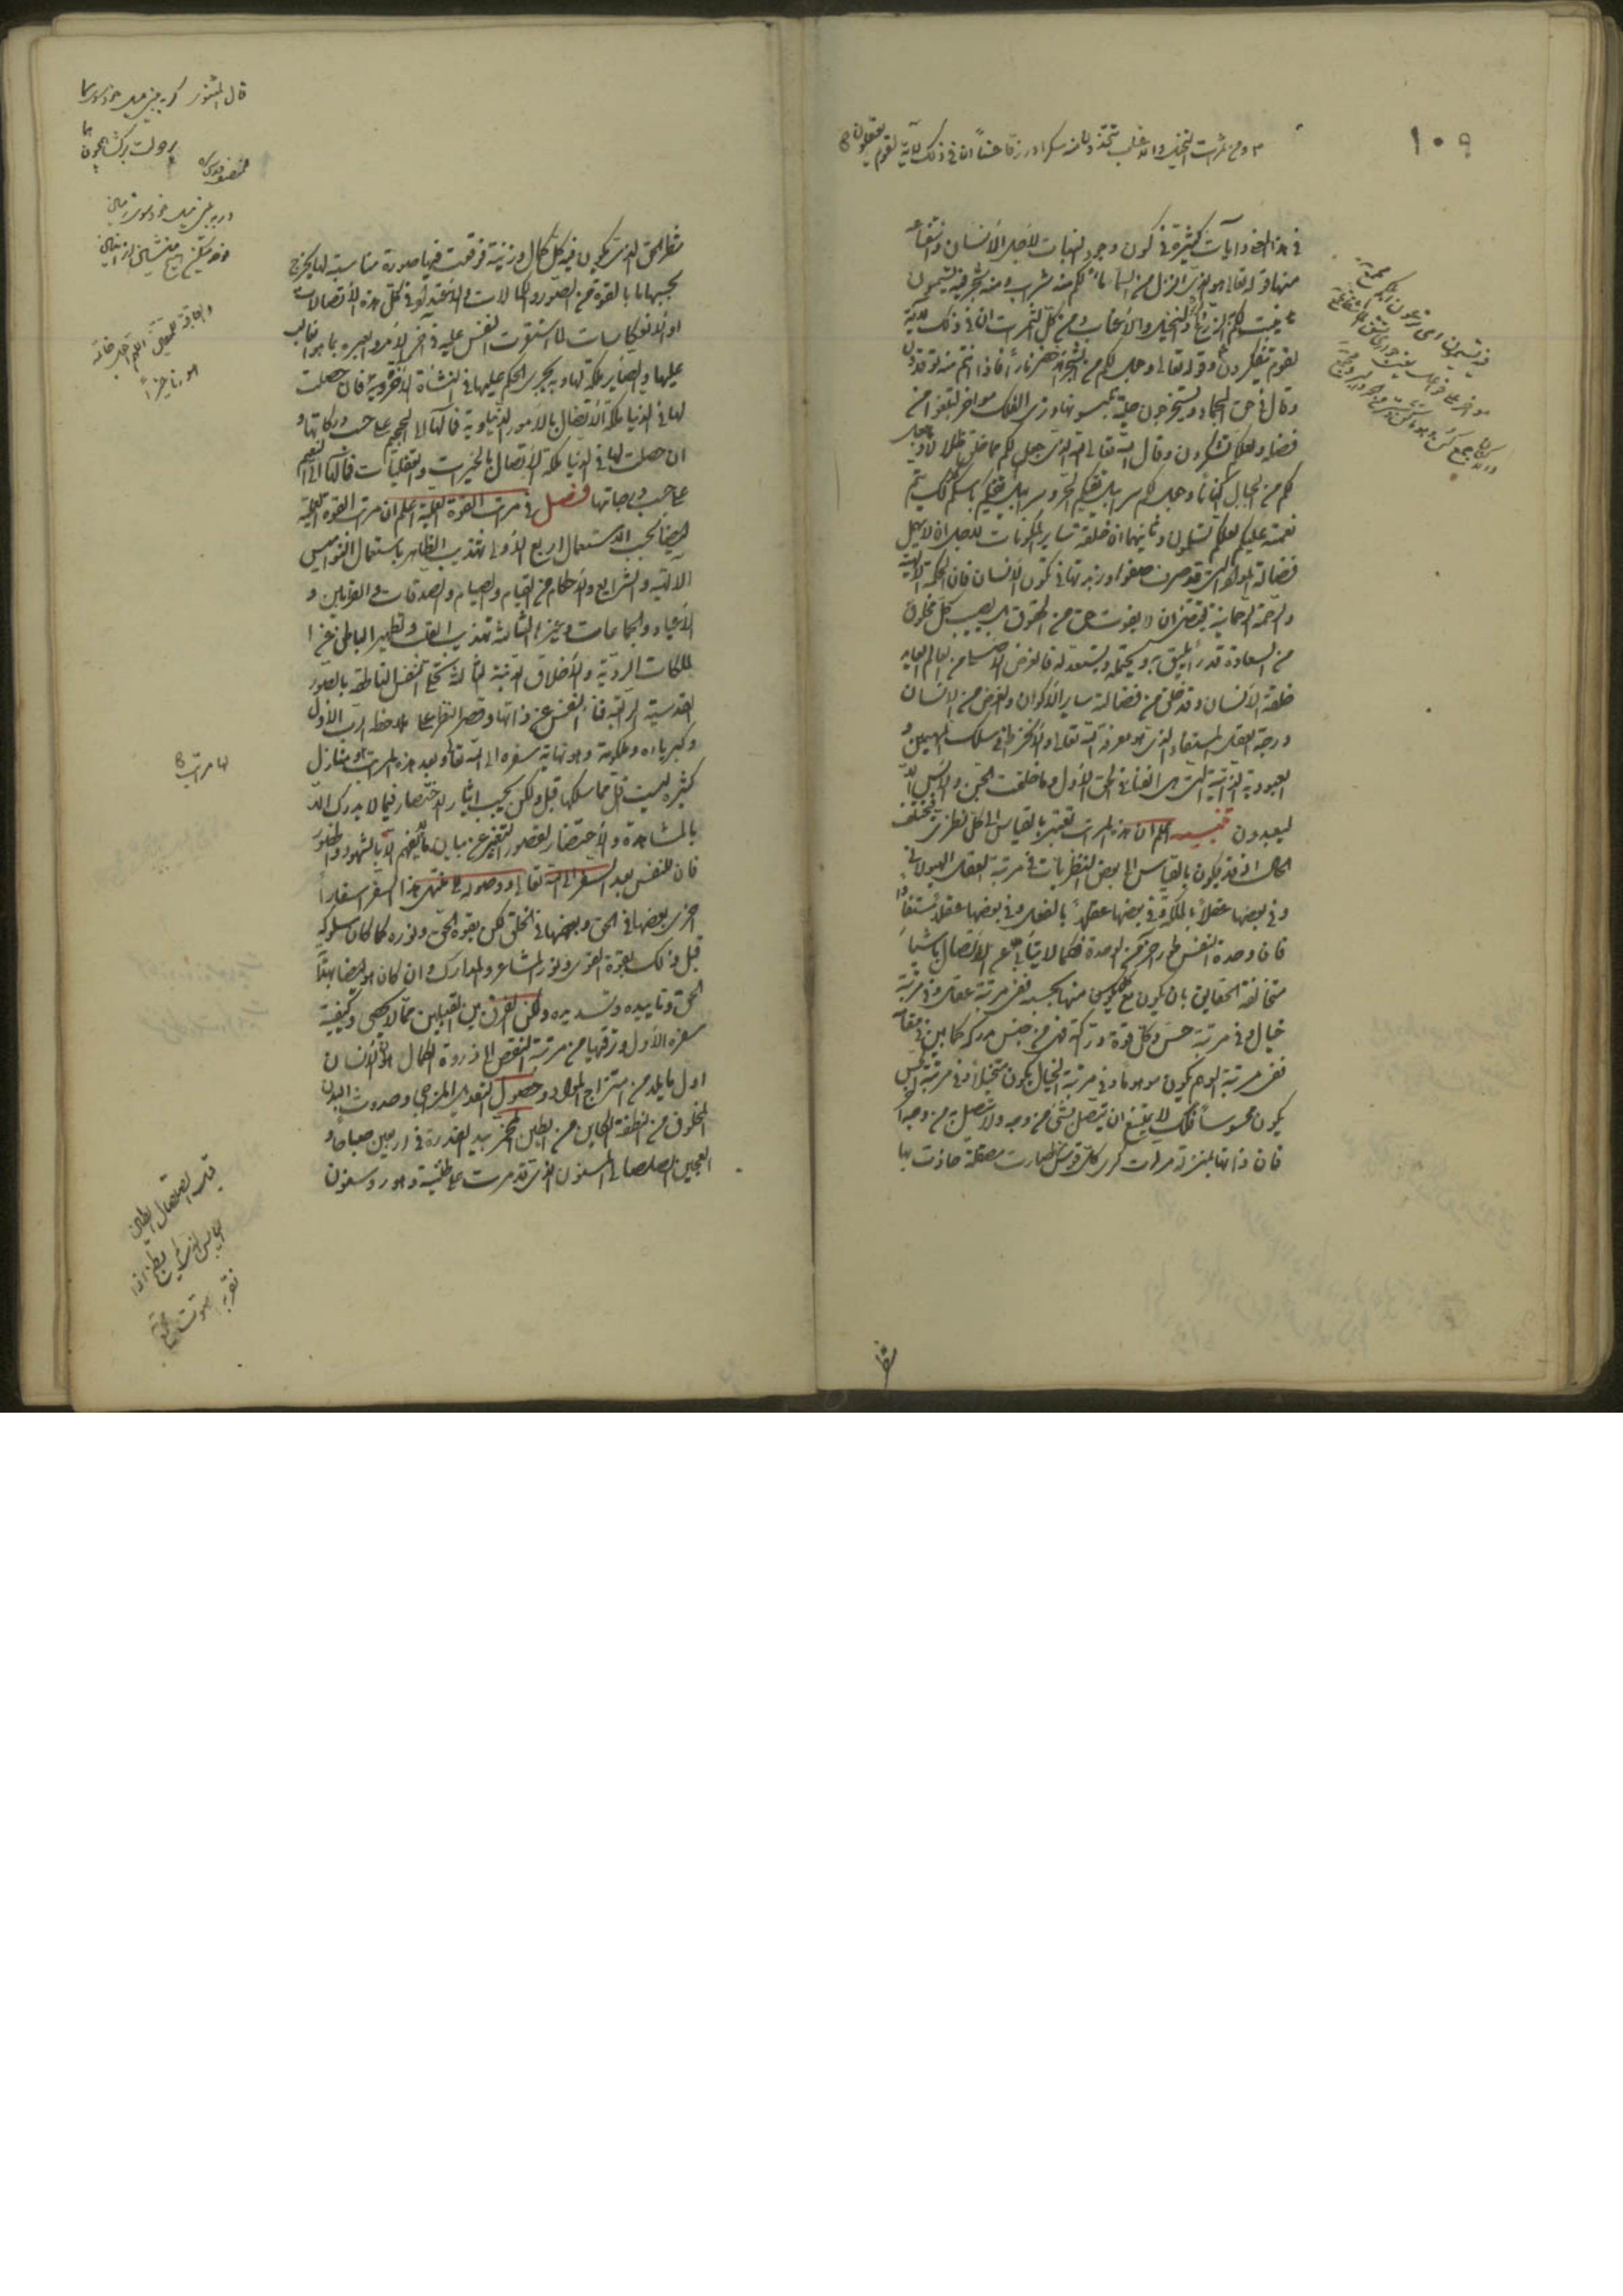 ١٠٩
ومن ثمرات النخيل والاعناب تتخذون منه سكرا ورزقا حسنا ان في ذلك لآية لقوم يعقلون
في هذا المعنى وآيات كثيرة في كون وجود النبات لأجل الانسان وانتفاعه
منها قوله تعالى هو الذي انزل من السماء ماء لكم منه شراب ومنه شجر فيه تسيمون
ينبت لكم به الزرع والنخيل والاعناب ومن كل الثمرات ان في ذلك لآية
لقوم يتفكرون وقوله تعالى وجعل لكم من الشجر الاخضر نارا فاذا انتم منه توقدون
وقال في حق الجماد وتستخرجون حلية تلبسونها وترى الفلك مواخر لتبتغوا من
فضله ولعلكم تشكرون وقال الله تعالى الله الذي جعل لكم مما خلق ظلالا وجعل
لكم من الجبال اكنانا وجعل لكم سرابيل تقيكم الحر وسرابيل تقيكم باسكم كذلك يتم
نعمته عليكم لعلكم تسلمون وثانيهما ان خلقة ساير المكونات لاجل ان لا يهمل
فضالة المواد التي قد صرف صفوها وزبدتها في تكون الانسان فان الحكمة الالهية
والرحمة الرحمانية تقتضي ان لا يفوت حق من الحقوق بل يصيب كل مخلوق
من السعادة قدرا يليق به ويحتمله ويستعد له فالغرض الاصلي من العالم
خلقة الانسان وقد خلق من فضالته ساير الاكوان والغرض من الانسان
درجة العقل المستفاد الذي هو معرفة الله تعالى والانخراط في سلك المهيمين و
العبودية الذاتية التي هي الفناء في الحق الاول وما خلقت الجن والانس الا
ليعبدون تنبيه اعلم ان هذه المراتب تعتبر بالقياس الى كل نظري فيختلف
الحال اذ قد يكون بالقياس الى بعض النظريات في مرتبة العقل الهيولاني
وفي بعضها عقلا بالملكة وفي بعضها عقلا بالفعل وفي بعضها عقلا مستفادا
فان وحدة النفس طور آخر من الوحدة فكما لا يتأبى عن الاتصال باشياء
متخالفة الحقايق بان يكون مع كل منها بحسبه ففي مرتبة عقل وفي مرتبة
خيال وفي مرتبة حس وكل قوة دراكة فهي من جنس مدركه كما بين في مقامه
ففي مرتبة الوهم يكون موهوما وفي مرتبة الخيال يكون متخيلا وفي مرتبة الحس
يكون محسوسا فكذلك لا يمتنع ان يتصل بشيء من وجه ولا يتصل به من وجه آخر
فان ذاتها بمنزلة مرآت كرى كلما قوس منها صارت مصقلة حاذت بها
شطر الحق الذي يكون فيه كل كمال وزينة فوقعت فيها صورة مناسبة لها يخرج
بحسبها ما بالقوة من الصور والكمالات والاعتداد في كل هذه الاتصالات
او الانعكاسات لما استقرت النفس عليه في آخر الامر والعبرة بما هو الغالب
عليها والصاير ملكة لها وبه يجري الحكم عليها في النشأة الاخروية فان حصلت
لها في الدنيا ملكة الاتصال بالامور الدنياوية فمآلها الى الجحيم على حسب دركاتها و
ان حصلت لها في الدنيا ملكة الاتصال بالخيرات والعقليات فمآلها الى النعيم
على حسب درجاتها فصل في مراتب القوة العملية اعلم ان مراتب القوة العملية
ايضا بحسب الاستعمال اربع الاولى تهذيب الظاهر باستعمال النواميس
الالهية والشرايع والاحكام من القيام والصيام والصدقات والقرابين و
الاعياد والجماعات وغيرها الثانية تهذيب القلب وتطهير الباطن عن ا
لملكات الردية والاخلاق الدنية الثالثة تحلي النفس الناطقة بالصور
القدسية الرابعة فناء النفس عن ذاتها وقصر النظر على ملاحظة الرب الاول
وكبريائه وملكوته وهو نهاية سفره الى الله تعالى وبعد هذه المراتب منازل
كثيرة ليست اقل مما سلكها قبل ولكن يجب ايثار الاختصار فيما لا يدرك الا
بالمشاهدة والاحتضار لقصور التعبير عن بيان ما لا يفهم الا بالشهود والحضور
فان للنفس بعد السفر الى الله تعالى ووصوله الى منتهى هذا السفر اسفارا
اخرى بعضها في الحق وبعضها في الخلق لكن بقوة الحق ونوره كما كان سلوكه
قبل ذلك بقوة القوى ونور المشاعر والمدارك وان كان هو ايضا بهداية
الحق وتاييده وتسديده ولكن الفرق بين القبيلين مما لا يحصى وكيفية
سفره الاول وترقيها من مرتبة النقص الى ذروة الكمال هو ان الانسان
اول ما يلد من امتزاج المواد وحصول التعديل المزاجي وحدوث البدن
المخلوق من النطفة الكاين من الطين المخمر بيد القدرة في اربعين صباحا و
العجين الصلصالي المسنون الذي قد مرت على طينته دهور وسنون
لها مراتب